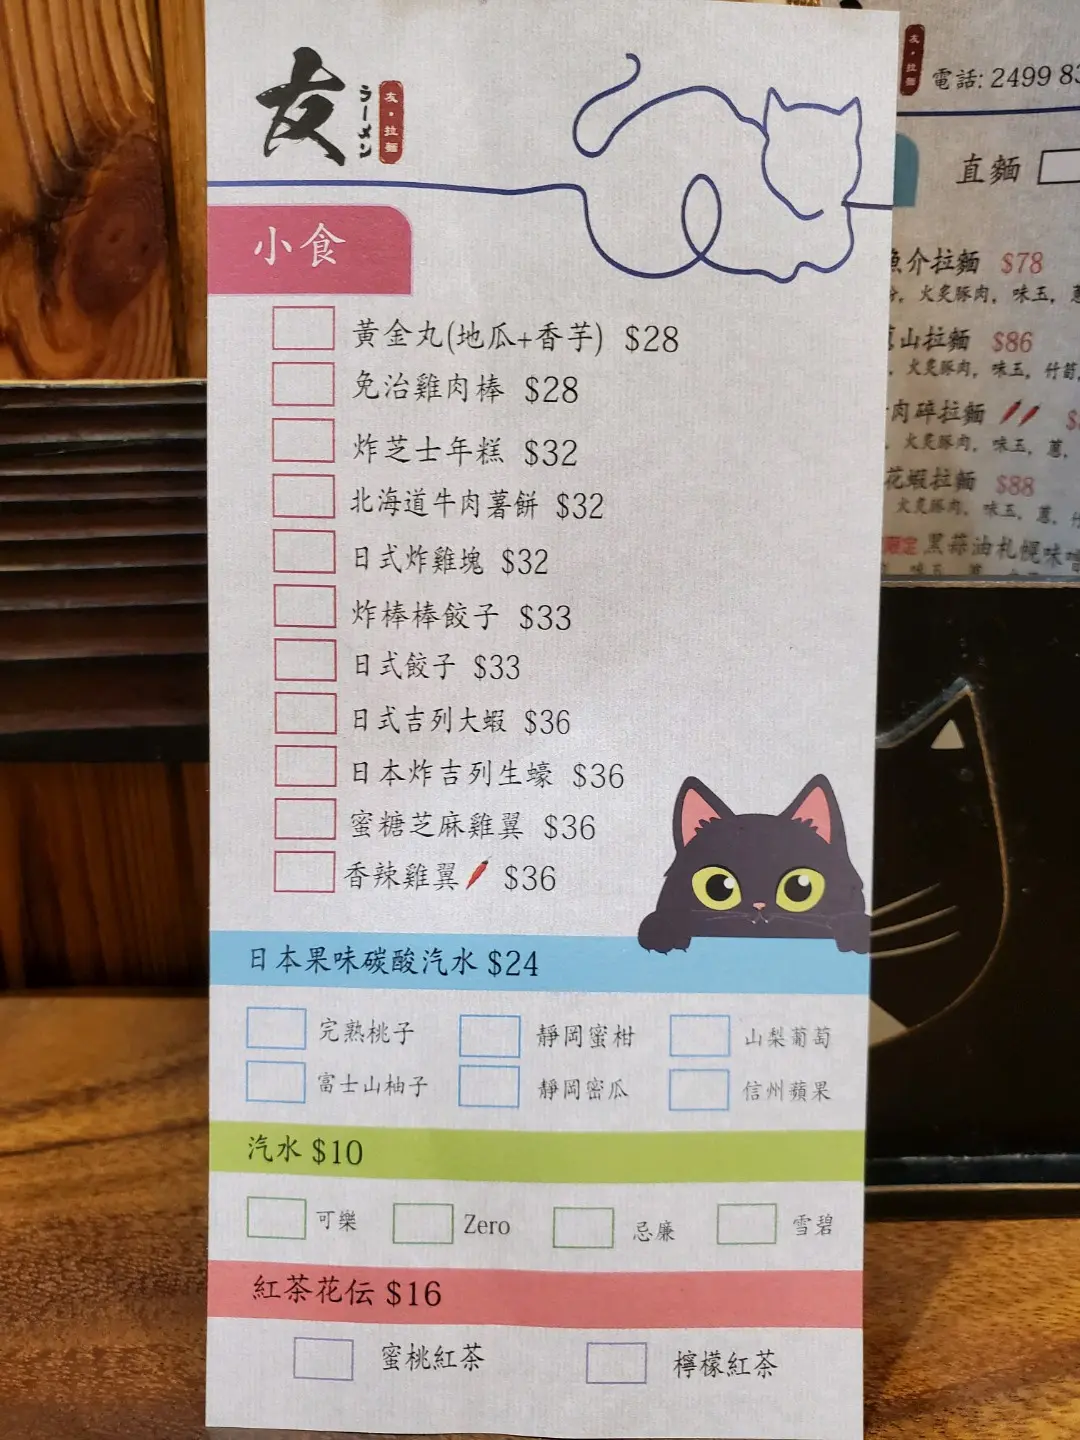 友
ラーメン
友・拉麵
小食
黃金丸(地瓜+香芋) $28
免治雞肉棒 $28
炸芝士年糕 $32
北海道牛肉薯餅 $32
日式炸雞塊 $32
炸棒棒餃子 $33
日式餃子 $33
日式吉列大蝦 $36
日本炸吉列生蠔 $36
蜜糖芝麻雞翼 $36
香辣雞翼 $36
日本果味碳酸汽水 $24
完熟桃子 靜岡蜜柑 山梨葡萄
富士山柚子 靜岡密瓜 信州蘋果
汽水 $10
可樂 Zero 忌廉 雪碧
紅茶花伝 $16
蜜桃紅茶 檸檬紅茶
友・拉麵
電話: 2499 83
直麵
魚介拉麵 $78
火炙豚肉, 味玉,
山拉麵 $86
火炙豚肉, 味玉, 竹筍,
肉碎拉麵
火炙豚肉, 味玉, 蔥,
花蝦拉麵 $88
火炙豚肉, 味玉, 蔥,
限定 黑蒜油札幌味噌